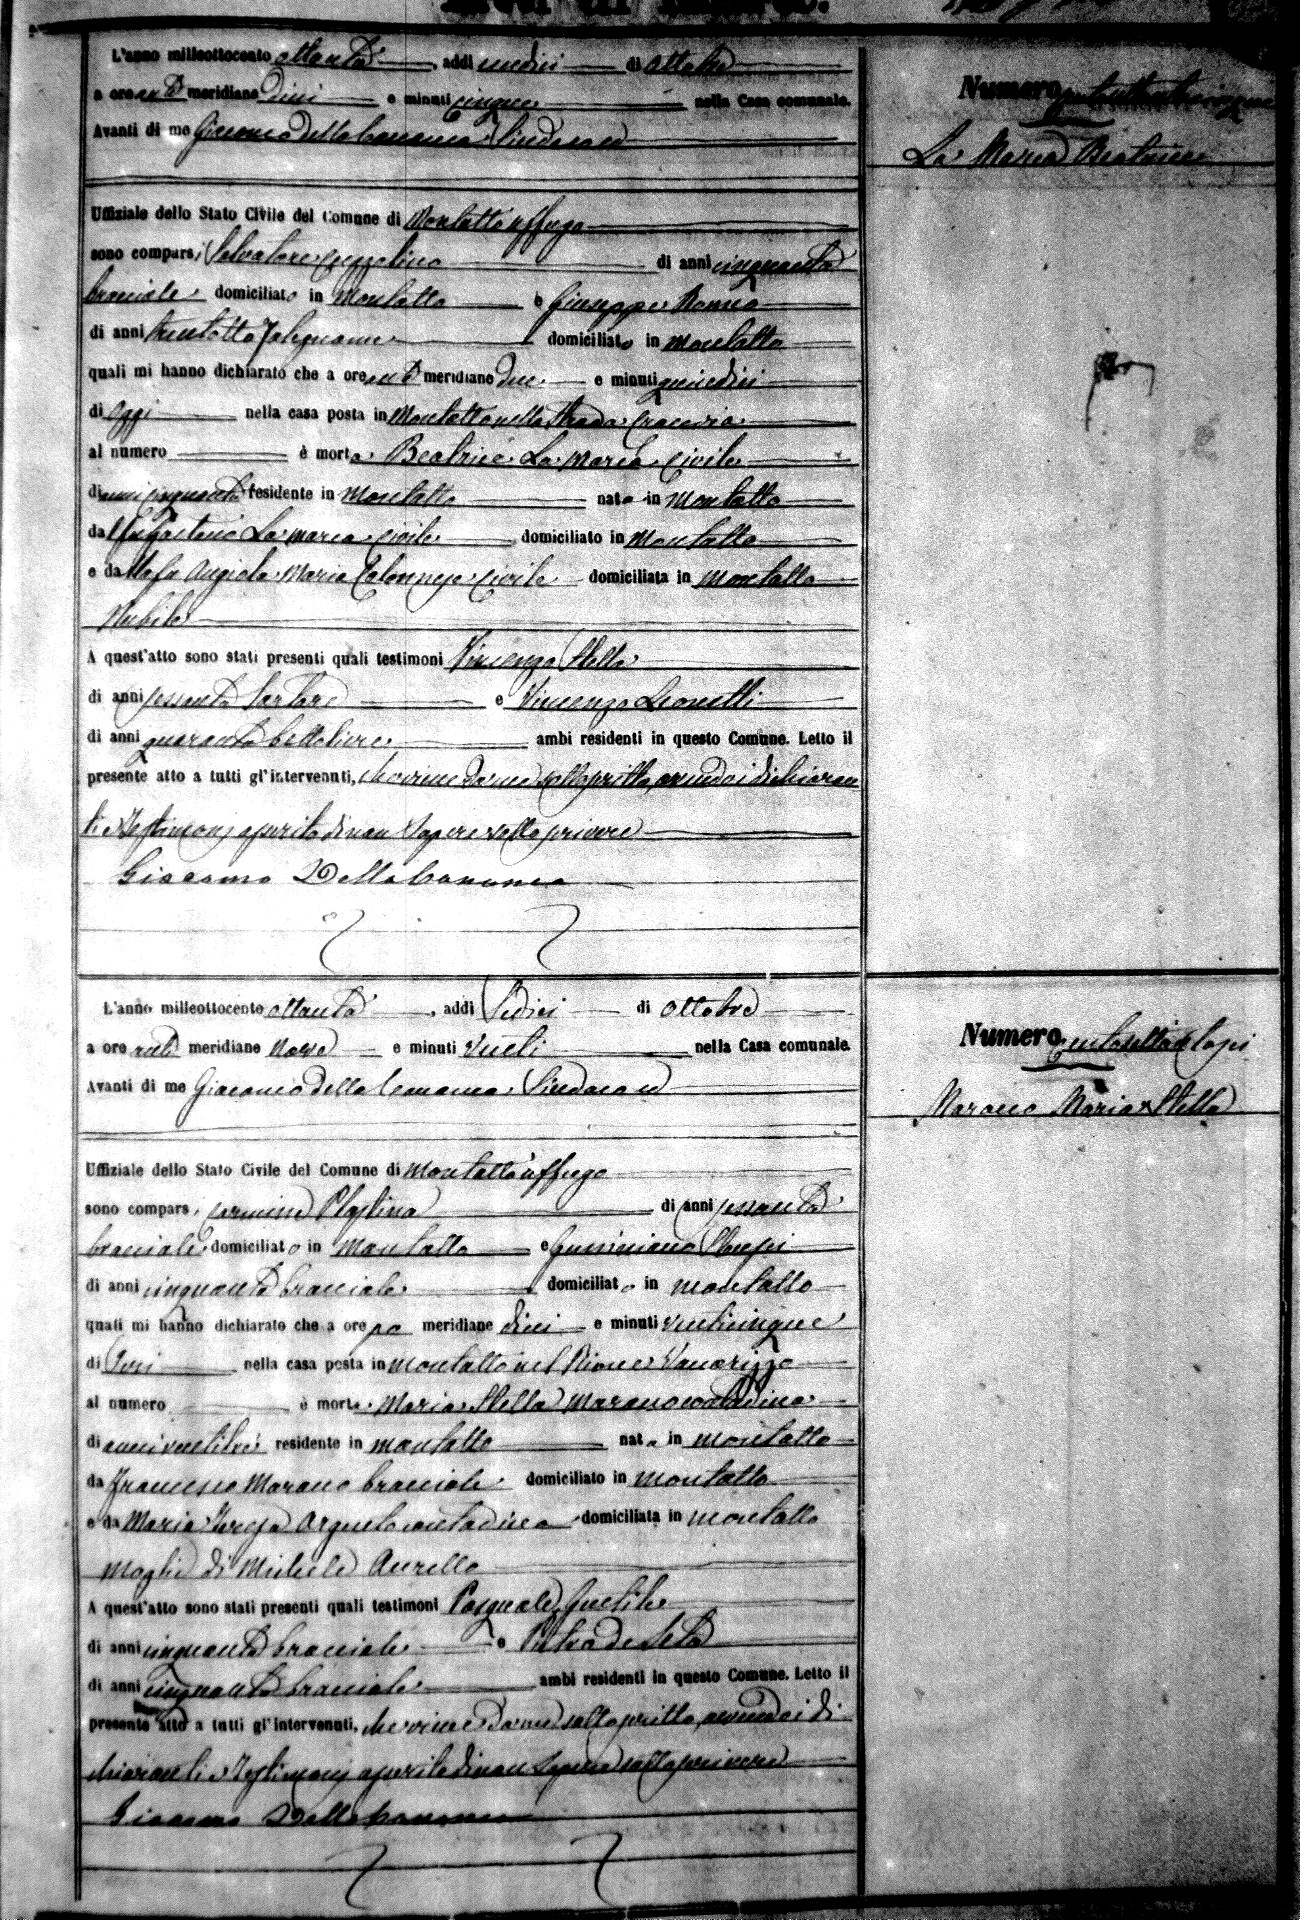 Atti di Morte.
L'anno milleottocento ottanta, addì undici di ottobre
a ore anti meridiane dieci e minuti cinque nella Casa comunale.
Avanti di me Giacomo Della Cananea Sindaco ed
Numero
La Marca Beatrice
Uffiziale dello Stato Civile del Comune di Montalto uffugo
sono comparsi Salvatore di anni cinquanta
bracciale domiciliato in Montalto e Giuseppe
di anni trentotto falegname domiciliato in Montalto
quali mi hanno dichiarato che a ore anti meridiane due e minuti quindici
di oggi nella casa posta in Montalto nella strada
al numero è morta Beatrice La Marca civile
di anni cinquanta residente in Montalto nata in Montalto
da La Marca civile domiciliato in Montalto
e da Angiola Maria civile domiciliata in Montalto
Nubile
A quest'atto sono stati presenti quali testimoni Vincenzo Stella
di anni sessanta sartore e Vincenzo Leonetti
di anni quaranta bottoliere ambi residenti in questo Comune. Letto il
presente atto a tutti gl'intervenuti, che viene da me sottoscritto, avendo i dichiaran
ti e testimonj asserito di non sapere sottoscrivere
Giacomo Della Cananea
L'anno milleottocento ottanta, addì Sedici di ottobre
a ore anti meridiane Nove e minuti Venti nella Casa comunale.
Avanti di me Giacomo Della Cananea Sindaco ed
Numero
Marano Maria Stella
Uffiziale dello Stato Civile del Comune di Montalto uffugo
sono comparsi Carmine Plastina di anni sessanta
bracciale domiciliato in Montalto e
di anni cinquanta bracciale domiciliato in Montalto
quali mi hanno dichiarato che a ore po meridiane dieci e minuti venticinque
di Jeri nella casa posta in Montalto nel Rione Vaccarizzo
al numero è morta Maria Stella Marano contadina
di anni ventitre residente in Montalto nata in Montalto
da Francesco Marano bracciale domiciliato in Montalto
e da Maria Teresa Argento contadina domiciliata in Montalto
moglie di Michele Aurello
A quest'atto sono stati presenti quali testimoni Pasquale
di anni cinquanta bracciale e Pietro de Seta
di anni cinquanta bracciale ambi residenti in questo Comune. Letto il
presente atto a tutti gl'intervenuti, che viene da me sottoscritto, avendo i di
chiaranti e testimonj asserito di non sapere sottoscrivere
Giacomo Della Cananea